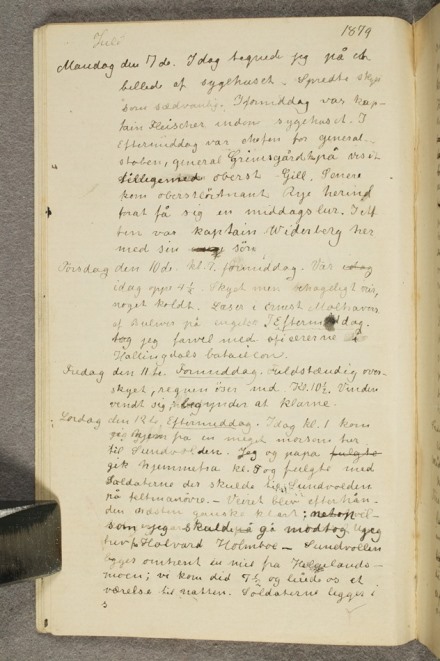 Juli 1879
Mandag den 7de. Idag tegnede jeg på et
billede af sygehuset. Spredte skyer
som sædvanlig. Iformiddag var kap-
tain Fleischer indom sygehuset. I
Eftermiddag var chefen for general-
staben, general Grimsgård på visit
tilligemed oberst Gill. Senere
kom oberstlöitnant Rye herind
forat få sig en middagslur. Iaf-
ten var kaptain Widerberg her
med sin sön
Torsdag den 10de. kl. 9. formiddag. Var
idag oppe 4½. Skyet men behageligt veir,
noget koldt. Læser i Ernest Maltravers
af Bulwer på engelsk. IEftermiddag
tog jeg farvel med officererne i
Hallingdals bataillon.
Fredag den 11te. Formiddag. Fuldstændig over-
skyet, regnen öser ned. Kl. 10½. Vinden
vendt sig, begynder at klarne.
Lördag den 12te, Eftermiddag. Idag kl. 1 kom
jeg hjem fra en meget morsom tur
til Sundvolden. Jeg og papa fulgte
gik hjemmefra kl. 5 og fulgte med
Soldaterne der skulde til Sundvolden
på feltmanövre. Veiret blev efterhån-
den næsten ganske klart; netop
som jeg skulde gå modtog jeg
brev fra Halvard Holmboe — Sundvolden
ligger omtrent en mil fra Helgelands-
moen; vi kom did 7½ og leiede os et
værelse til natten. Soldaterne ligger i